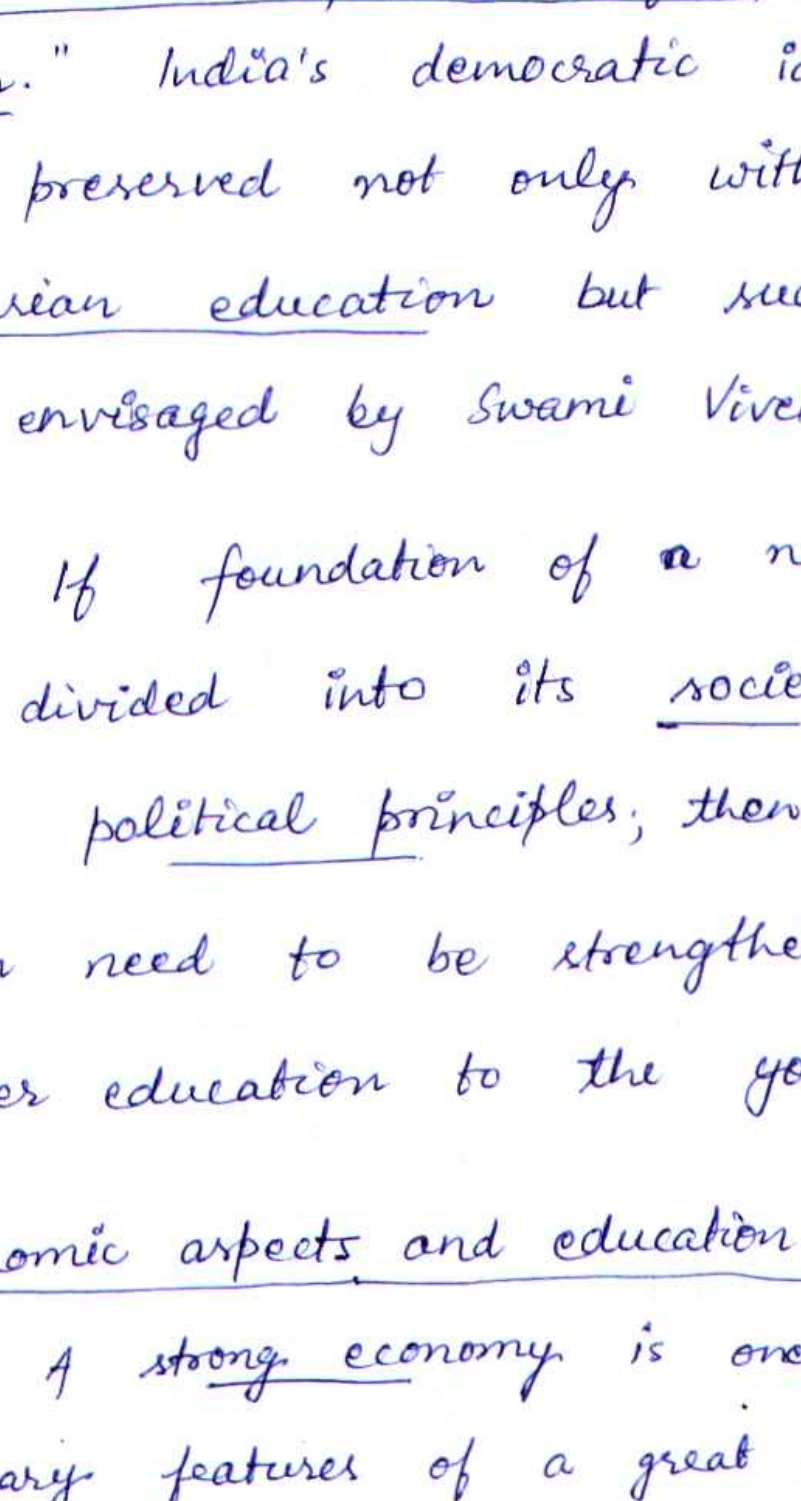 ." India's democratic
preserved not only
education but
envisaged by Swami
If foundation of
divided into its
political principles; then
need to be
education to the
aspects and education
A strong economy is
features of a great